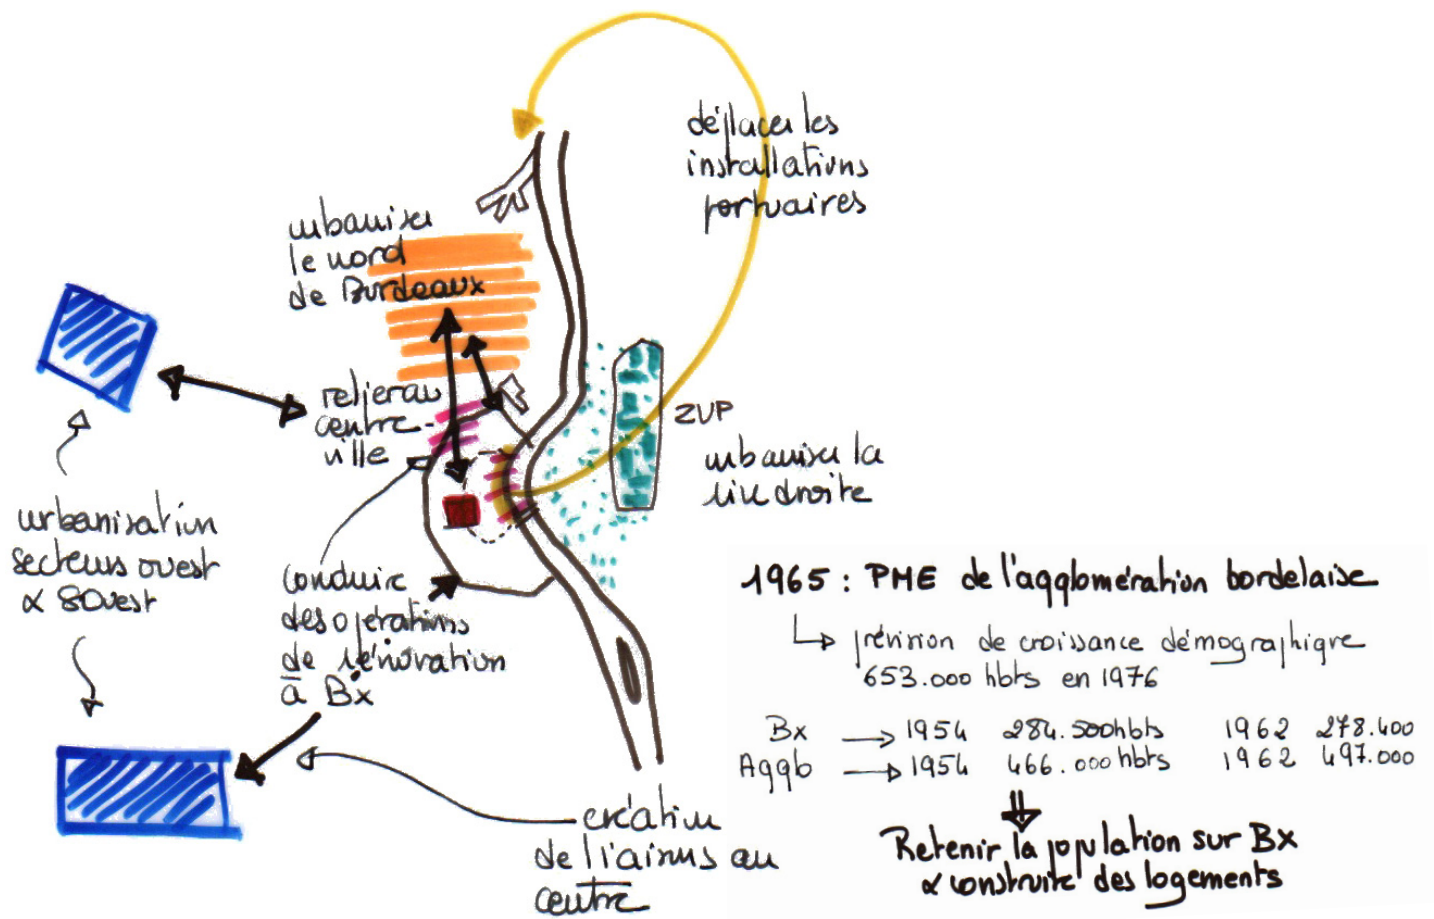 déplacer les
installations
portuaires
urbaniser
le nord
de Bordeaux
relier au
centre-
ville
ZUP
urbaniser la
rive droite
urbanisation
secteurs ouest
& SOuest
conduire
des opérations
de rénovation
à Bx
création
de liaisons au
centre
1965 : PME de l'agglomération bordelaise
prévision de croissance démographique
653.000 hbts en 1976
Bx → 1954 284.500 hbts 1962 278.400
Aggb → 1954 466.000 hbts 1962 497.000
Retenir la population sur Bx
& construire des logements